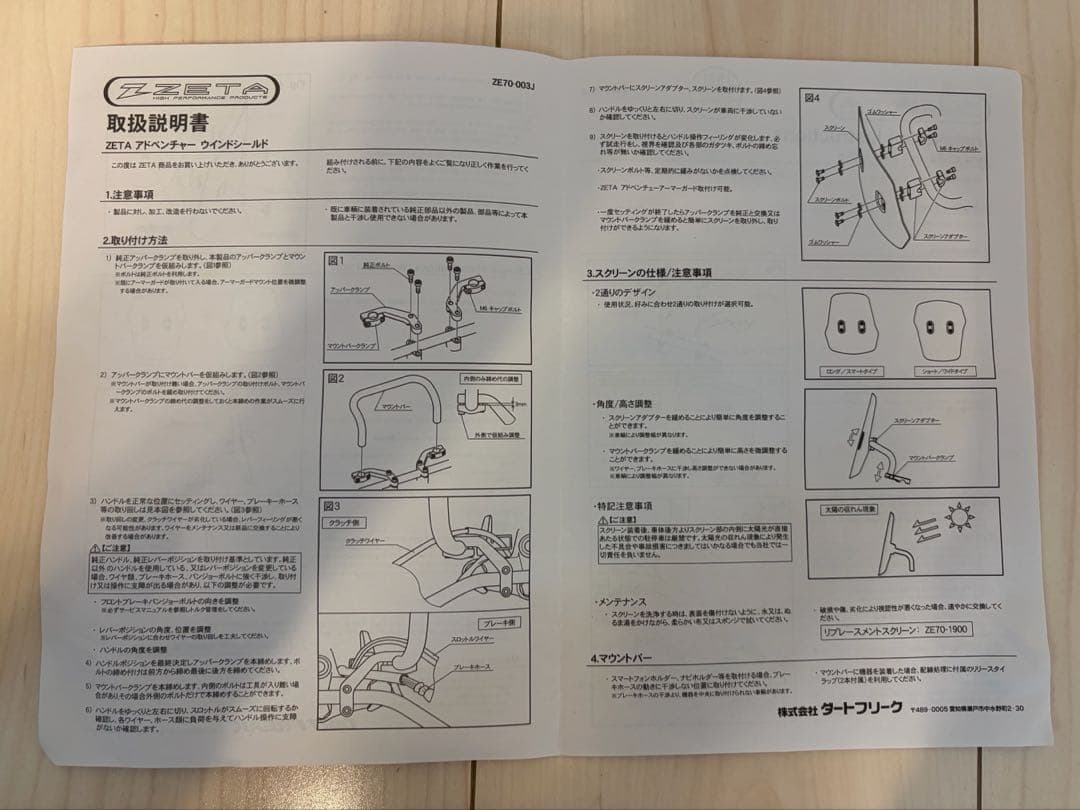 ZETA
HIGH PERFORMANCE PRODUCTS
ZE70-003J
取扱説明書
ZETA アドベンチャー ウインドシールド
この度は ZETA 商品をお買い上げいただき、ありがとうございます。
組み付けされる前に、下記の内容をよくご覧になり正しく作業を行ってください。
1.注意事項
・製品に対し、加工、改造を行わないでください。
・既に車輌に装着されている純正部品以外の製品、部品等によって本
製品と干渉し使用できない場合があります。
2.取り付け方法
1) 純正アッパークランプを取り外し、本製品のアッパークランプとマウン
トバークランプを仮組みします。(図1参照)
※ボルトは純正ボルトを利用します。
※既にアーマーガードが取り付いて入る場合、アーマーガードマウント位置を微調整
する場合があります。
図1
純正ボルト
アッパークランプ
M6 キャップボルト
マウントバークランプ
2) アッパークランプにマウントバーを仮組みします。(図2参照)
※マウントバーが取り付け難い場合、アッパークランプの取り付けボルト、マウントバ
ークランプのボルトを緩め取り付けてください。
※マウントバークランプの締め代の調整をしておくと本締めの作業がスムーズに行
えます。
図2
マウントバー
内側のみ締め代の調整
3mm
外側で仮組み調整
3) ハンドルを正常な位置にセッティングし、ワイヤー、ブレーキーホース
等の取り回しは見本図を参照してください。(図3参照)
※取り回しの変更、クラッチワイヤーが劣化している場合、レバーフィーリングが悪く
なる可能性があります。ワイヤーをメンテナンス又は新品に交換することにより
改善する場合があります。
【ご注意】
純正ハンドル、純正レバーポジションを取り付け基準としています。純正
以外のハンドルを使用している、又はレバーポジションを変更している
場合、ワイヤ類、ブレーキホース、バンジョーボルトに強く干渉し、取り付
け又は操作に支障が出る場合があり、以下の調整が必要です。
・フロントブレーキバンジョーボルトの向きを調整
※必ずサービスマニュアルを参照しトルク管理をしてください。
・レバーポジションの角度、位置を調整
※レバーポジションに合わせワイヤーの取り回しを工夫してください。
・ハンドルの角度を調整
4) ハンドルポジションを最終決定しアッパークランプを本締めします、ボ
ルトの締め付けは前方から締め最後に後方を締めてください。
5) マウントバークランプを本締めします。内側のボルトは工具が入り難い場
合があり、その場合外側のボルトだけで本締めすることができます。
6) ハンドルをゆっくりと左右に切り、スロットルがスムーズに回転するか
確認し、各ワイヤー、ホース類に負荷を与えてハンドル操作に支障
がないか確認します。
図3
クラッチ側
クラッチワイヤー
ブレーキ側
スロットルワイヤー
ブレーキホース
7) マウントバーにスクリーンアダプター、スクリーンを取付けます。(図4参照)
8) ハンドルをゆっくりと左右に切り、スクリーンが車両に干渉していない
か確認してください。
9) スクリーンを取り付けるとハンドル操作フィーリングが変化します、必
ず試走行をし、視界を確認及び各部のガタツキ、ボルトの締め忘
れ等が無いか確認してください。
・スクリーンボルト等、定期的に緩みがないかを点検してください。
・ZETA アドベンチャーアーマーガード取付け可能。
・一度セッティングが終了したらアッパークランプを純正と交換又は
マウントバークランプを緩めると簡単にスクリーンを取り外し、取り
付けができるようになります。
図4
ゴムワッシャー
スクリーン
M6 キャップボルト
スクリーンボルト
ゴムワッシャー
スクリーンアダプター
3.スクリーンの仕様/注意事項
・2通りのデザイン
・ 使用状況、好みに合わせ2通りの取り付けが選択可能。
ロング/スマートタイプ
ショート/ワイドタイプ
・角度/高さ調整
・ スクリーンアダプターを緩めることにより簡単に角度を調整するこ
とができます。
※車輌により調整幅が異なります。
・ マウントバークランプを緩めることにより簡単に高さを微調整する
ことができます。
※ワイヤー、ブレーキホースに干渉し高さ調整ができない場合があります。
※車輌により調整幅が異なります。
スクリーンアダプター
マウントバークランプ
・特記注意事項
【ご注意】
スクリーン装着後、車体後方よりスクリーン部の内側に太陽光が直接
あたる状態での駐停車は厳禁です。太陽光の収れん現象により発生
した不具合や事故損害につきましてはいかなる場合でも当社では一
切責任を負いません。
太陽の収れん現象
・メンテナンス
・ スクリーンを洗浄する時は、表面を傷付けないように、水又は、ぬ
るま湯をかけながら、柔らかい布又はスポンジで拭いてください。
・ 破損や傷、劣化により視認性が悪くなった場合、速やかに交換してく
ださい。
リプレースメントスクリーン: ZE70-1900
4.マウントバー
・ スマートフォンホルダー、ナビホルダー等を取付ける場合、ブレー
キホースの動きに干渉しない位置に取り付けてください。
※ブレーキホースの干渉より、機器を中央に取り付けられない車輌があります。
・マウントバーに機器を装着した場合、配線処理に付属のリリースタイ
ラップ(2本付属)を利用してください。
株式会社 ダートフリーク 〒489-0005 愛知県瀬戸市中水野町2-30